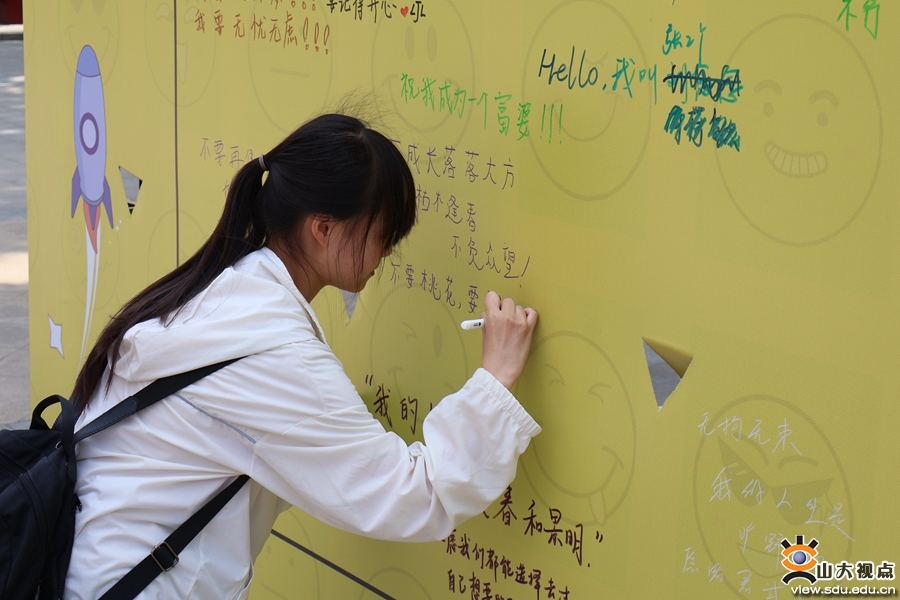 要记得开心
我要无忧无虑!!!
不开
Hello,我叫
张2个
祝我成为一个富婆!!!
不要再
成长落落大方
朽木逢春
不负众望!
不要桃花,要
"我的
春和景明"
愿我们都能选择去过
自己想要
无拘无束
我的人生是
旷野
山大视点
www.view.sdu.edu.cn